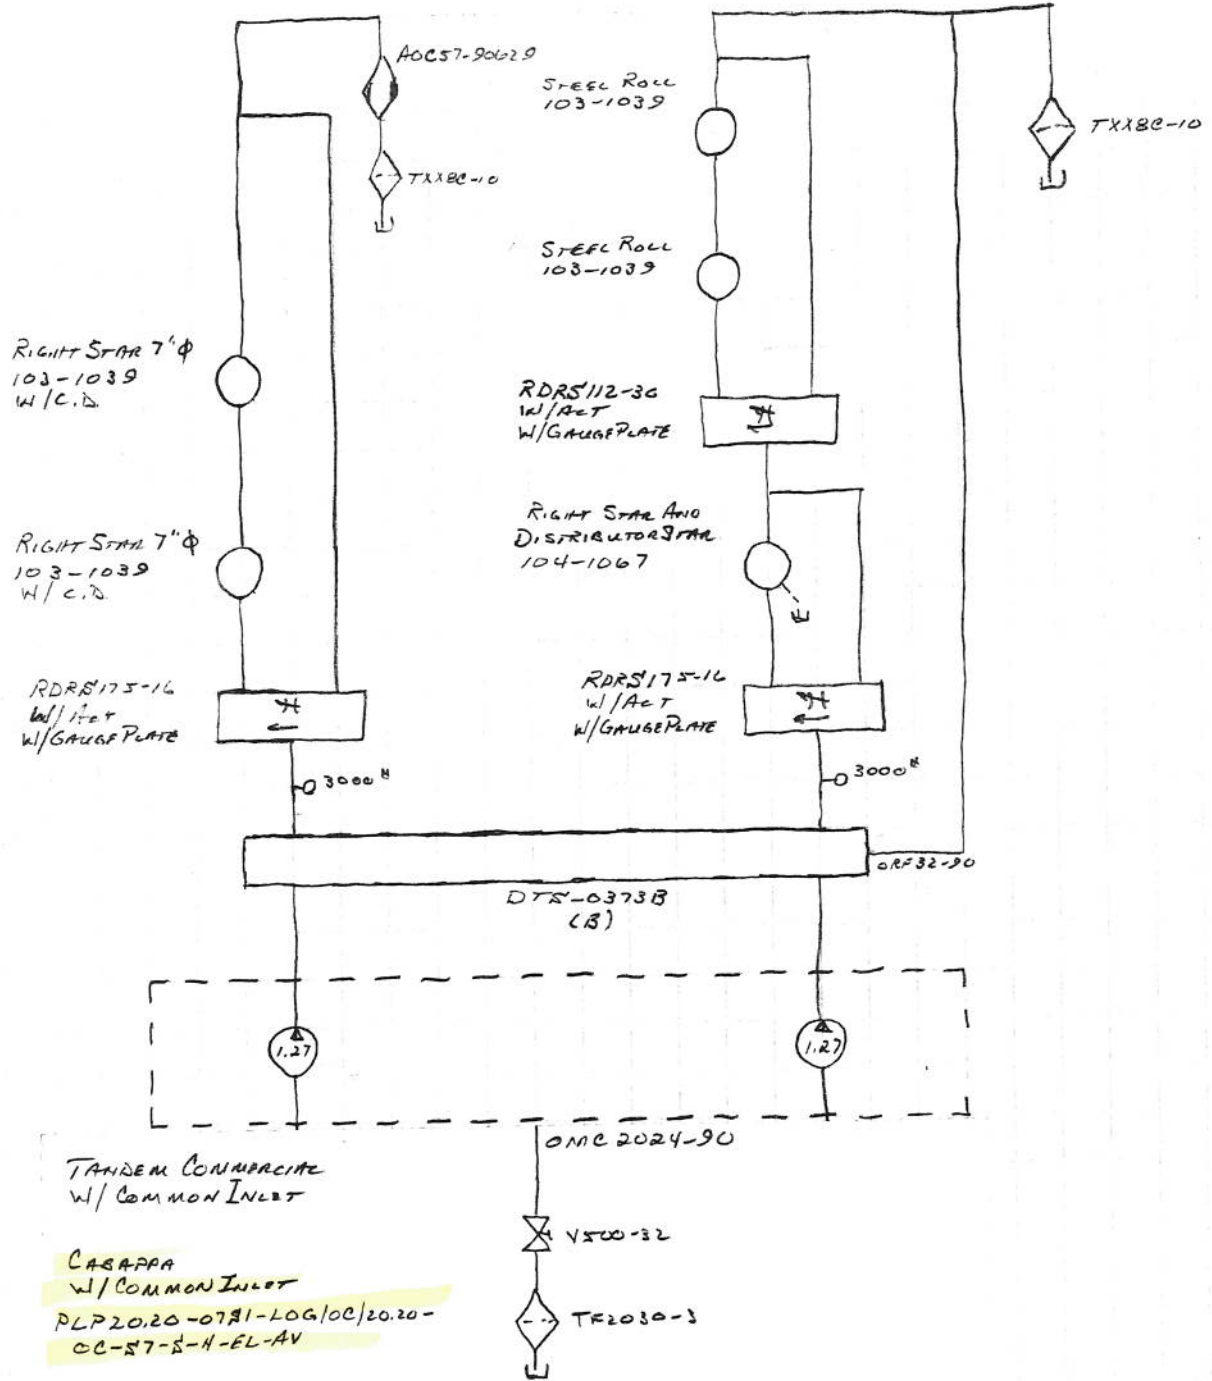 AOC57-90629
TXX8C-10
STEEL ROLL
103-1039
TXX8C-10
STEEL ROLL
103-1039
RIGHT STAR 7"Φ
103-1039
W/C.D.
RDRS112-36
W/ACT
W/GAUGE PLATE
RIGHT STAR AND
DISTRIBUTOR STAR
104-1067
RIGHT STAR 7"Φ
103-1039
W/C.D.
RDRS175-16
W/ACT
W/GAUGE PLATE
RDRS175-16
W/ACT
W/GAUGE PLATE
3000#
3000#
ORF32-90
DTS-0373B
(B)
1.27
1.27
OMC 2024-90
TANDEM COMMERCIAL
W/ COMMON INLET
V500-32
CASAPPA
W/ COMMON INLET
PLP20.20-07S1-LOG/OC/20.20-
OC-S7-S-N-EL-AV
TF2030-3